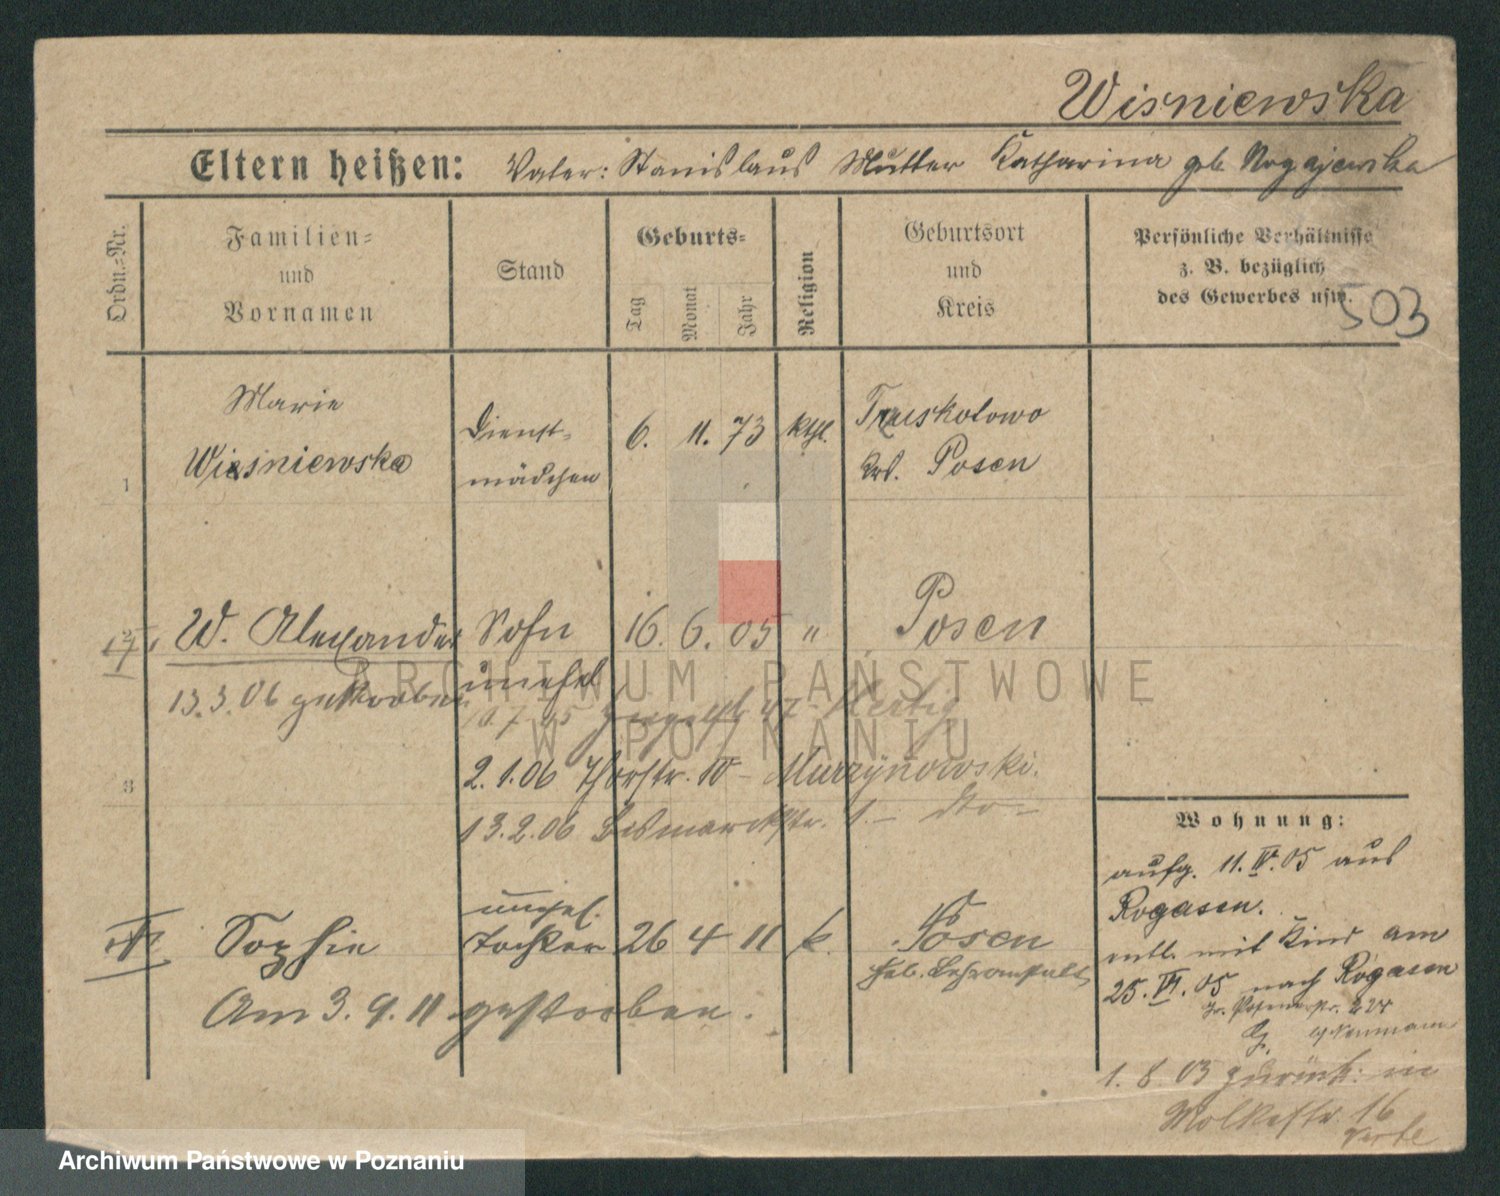 Wisniewska
Eltern heißen: Vater: Stanislaus Mutter Katharina geb Rogajewska
Ordn.-Nr.
Familien-
und
Vornamen
Stand
Geburts-
Tag
Monat
Jahr
Religion
Geburtsort
und
Kreis
Persönliche Verhältnisse
z. B. bezüglich
des Gewerbes usw.
503
1
Marie
Wisniewska
Dienst-
mädchen
6. 11. 73 kthl.
Truskotowo
Krs. Posen
2
W. Alexander Sohn 16. 6. 05 " Posen
unehel
13.3.06 gestorben
10.7.05
2.1.06 Thorstr. 10 - Murzynowski.
3
13.2.06 Bismarckstr. 1. - dto -
Wohnung:
aufg. 11. IV. 05 aus
Rogasen.
entl. mit Kind am
25. VI. 05 nach Rogasen
unehel.
Sophie Tochter 26 4 11 k. Posen
Heb. Lehranstalt
Am 3. 9. 11 gestorben.
1. 8 05 zurück: in
Molkestr. 16
ARCHIWUM PAŃSTWOWE
W POZNANIU
Archiwum Państwowe w Poznaniu